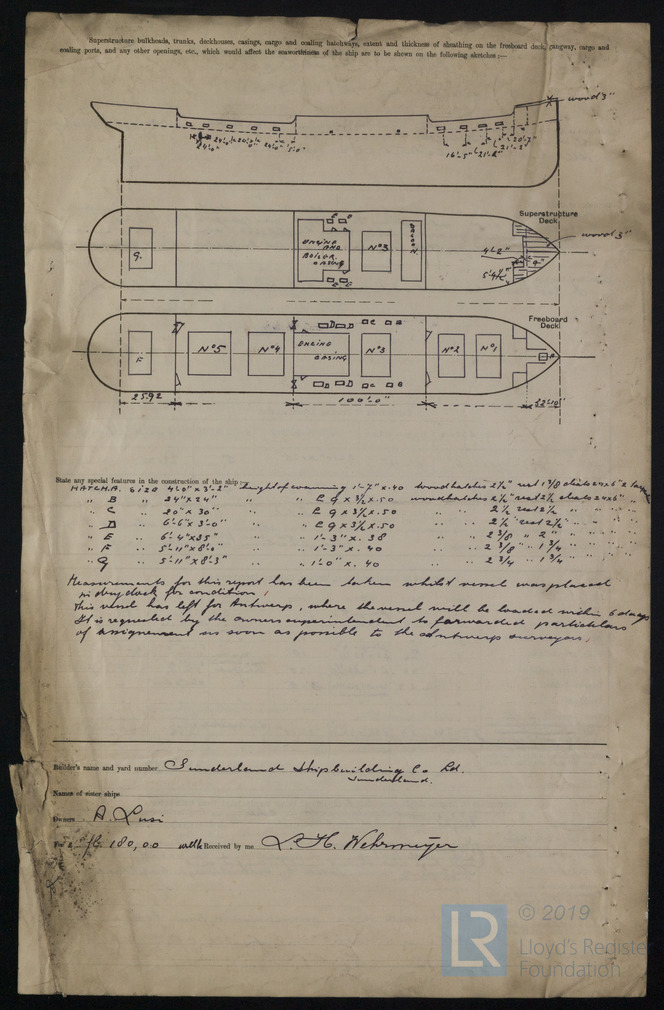 Superstructure bulkheads, trunks, deckhouses, casings, cargo and coaling hatchways, extent and thickness of sheathing on the freeboard deck, gangway, cargo and
coaling ports, and any other openings, etc., which would affect the seaworthiness of the ship are to be shewn on the following sketches:—
wood 3"
16'-5" 21'-2" 21'-2" 20'-7"
Superstructure
Deck
wood 3"
G.
ENGINE
AND
BOILER
CASING
No 3
4'-2"
Freeboard
Deck
F
No 5
No 4
ENGINE
CASING
No 3
No 2
No 1
25.92
100'-0"
32'-10"
State any special features in the construction of the ship:—
HATCH A. SIZE 4'-0" x 3'-2" height of coaming 1'-7" x .40 wood hatches 2½" rest 1⅞ cleats 24x6"
" B " 24" x 24" " " L 9 x 3½ x .50 wood hatches 2½" rest 2½ cleats 24x6" "
" C " 20" x 30" " " L 9 x 3½ x .50 " 2½ rest 2½ " "
" D " 6'-6" x 3'-0" " " L 9 x 3½ x .50 " 2½ rest 2½ " "
" E " 6'-4" x 35" " " 1'-3" x .38 " 2⅜ " 2" " "
" F " 5'-11" x 8'-0" " " 1'-3" x .40 " 2⅜ " 1¾ " "
" G " 5'-11" x 8'-3" " " 1'-0" x .40 " 2¾ " 1¾ " "
Measurements for this report has been taken whilst vessel was placed
in drydock for condition.
This vessel has left for Antwerp, where the vessel will be loaded within 6 days
It is requested by the owners superintendent to forwarded particulars
of assignement as soon as possible to the Antwerp surveyors.
Builder's name and yard number Sunderland Shipbuilding Co Ld.
Sunderland.
Names of sister ships
Owners A. Lusi
Fee fl. 180,00 Received by me L. H. Wehrmeyer
© 2019
LR
Lloyd's Register
Foundation